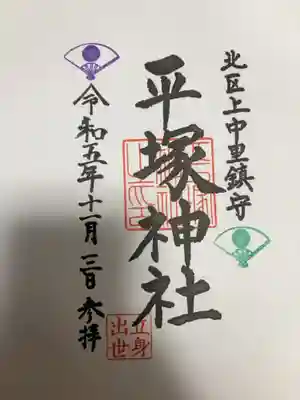 北区上中里鎮守
平塚神社
令和五年十一月三日参拝
立身
出世